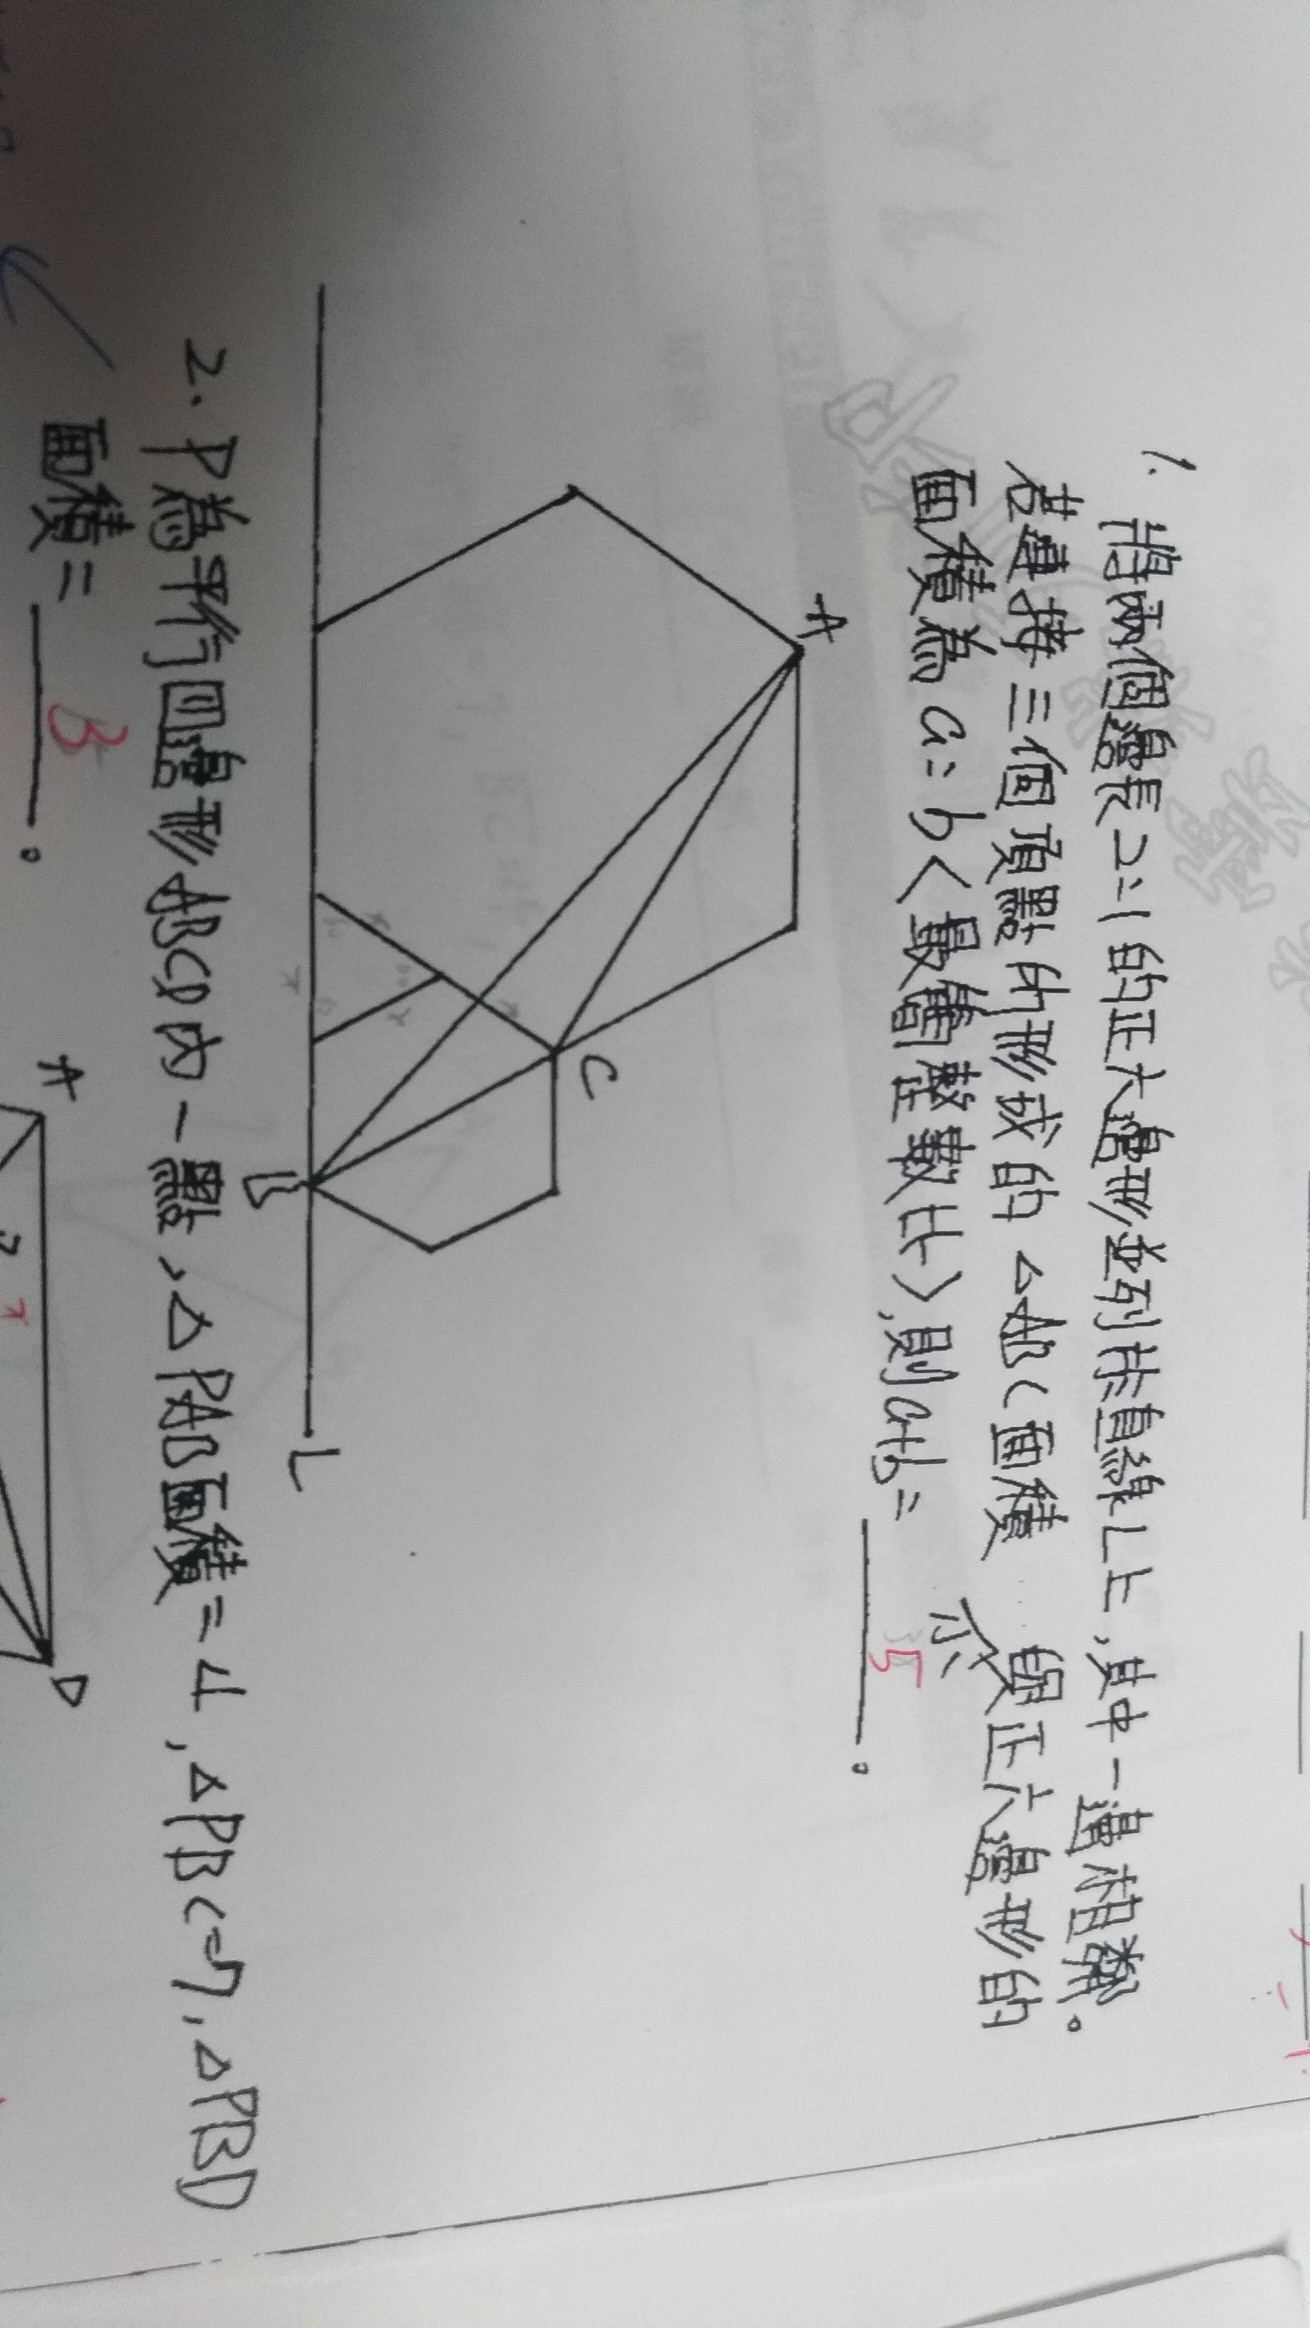 1. 將兩個邊長2:1的正六邊形並列於直線L上,其中一邊相鄰。
若連接三個頂點所形成的△ABC面積 跟正六邊形的
小
面積為a:b<最簡整數比>,則a+b= 5 。
A
C
B
L
2. P為平行四邊形ABCD內一點,△PAB面積=4,△PBC=7,△PBD
面積= 3 。
A
D